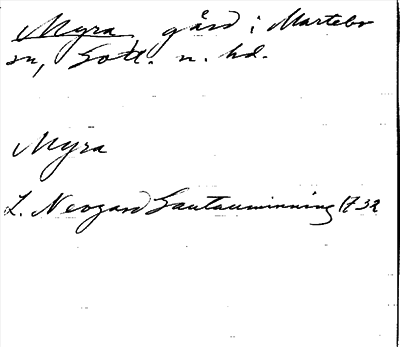 Myra, gård i Martebo
sn, Gotl. n. hd.
Myra
L. Neogard Gautauminning 1732